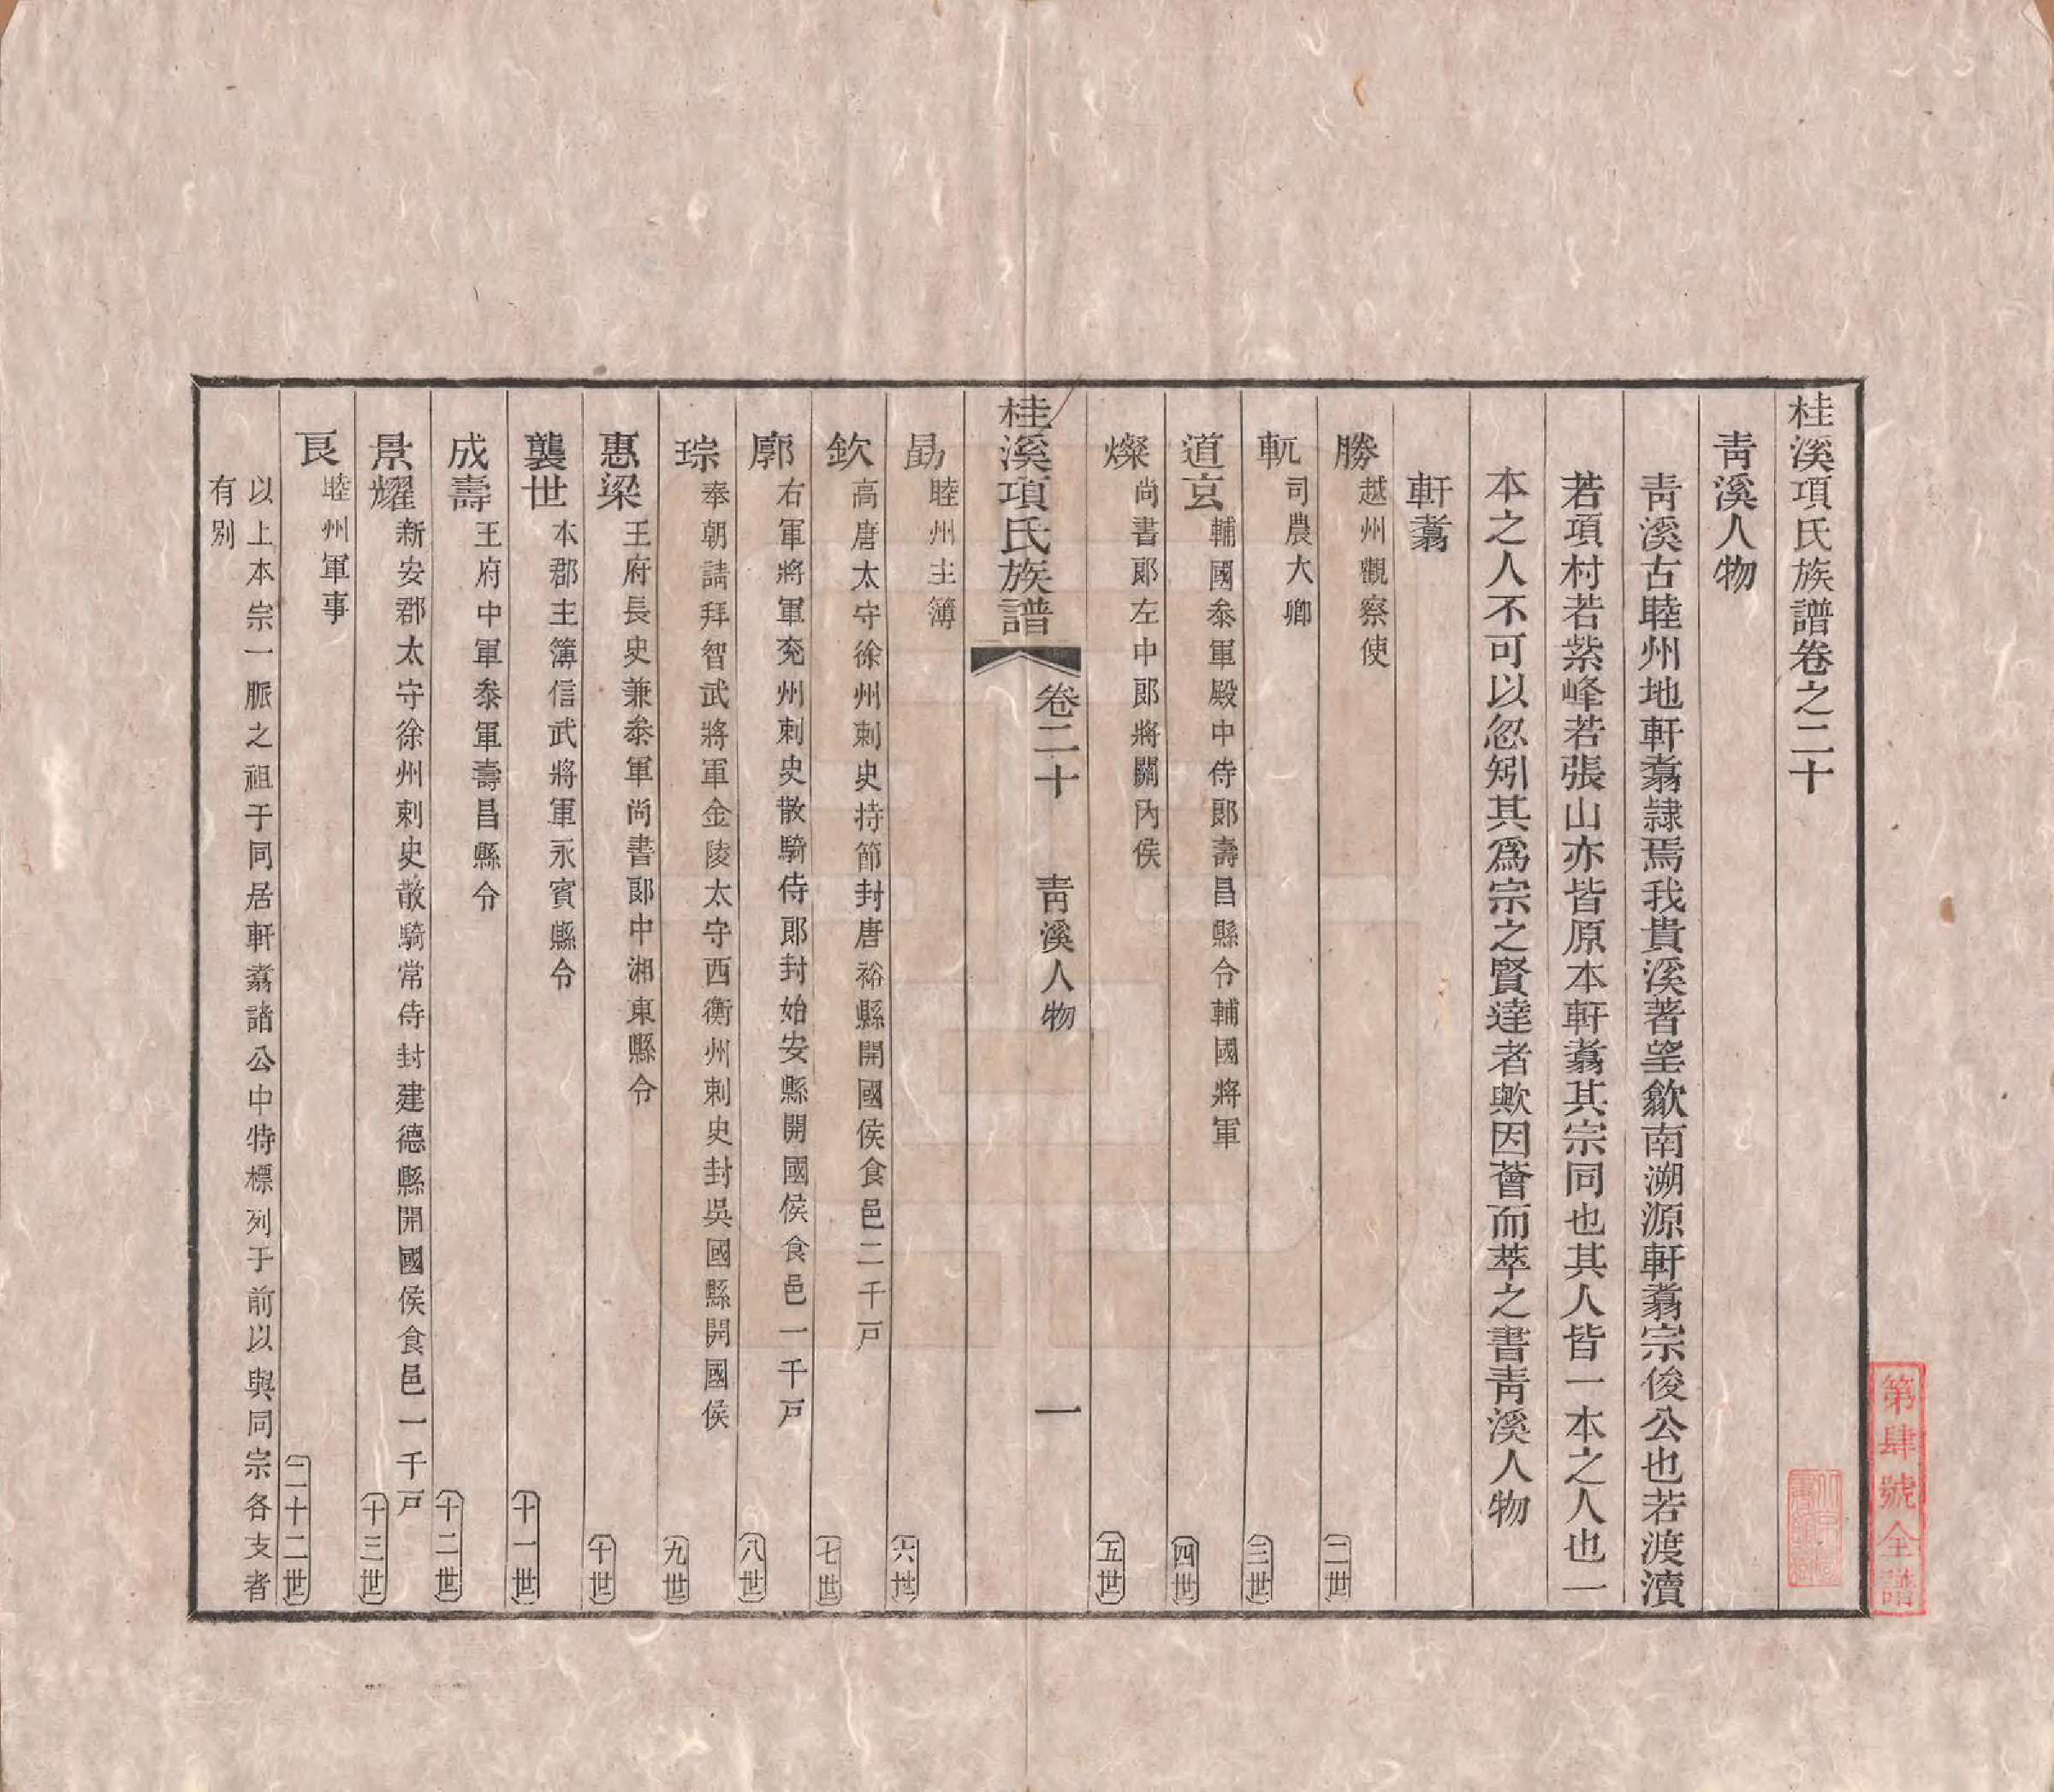 桂溪項氏族譜卷之二十
青溪人物
青溪古睦州地軒翥隷焉我貴溪著望歙南溯源軒翥宗俊公也若渡瀆
若項村若紫峰若張山亦皆原本軒翥其宗同也其人皆一本之人也一
本之人不可以忽矧其爲宗之賢達者歟因薈而萃之書青溪人物
軒翥
勝 越州觀察使 二世
軏 司農大卿 三世
道玄 輔國叅軍殿中侍郎壽昌縣令輔國將軍 四世
燦 尚書郎左中郎將關內侯 五世
桂溪項氏族譜 卷二十 青溪人物 一
勗 睦州主簿 六世
欽 高唐太守徐州刺史持節封唐裕縣開國侯食邑二千戸 七世
廓 右軍將軍兗州刺史散騎侍郎封始安縣開國侯食邑一千戸 八世
琮 奉朝請拜智武將軍金陵太守西衡州刺史封吳國縣開國侯 九世
惠梁 王府長史兼叅軍尚書郎中湘東縣令 十世
襲世 本郡主簿信武將軍永賓縣令 十一世
成壽 王府中軍叅軍壽昌縣令 十二世
景耀 新安郡太守徐州刺史散騎常侍封建德縣開國侯食邑一千戸 十三世
莨 睦州軍事 二十二世
以上本宗一脈之祖于同居軒翥諸公中特標列于前以與同宗各支者
有別
第肆號全譜